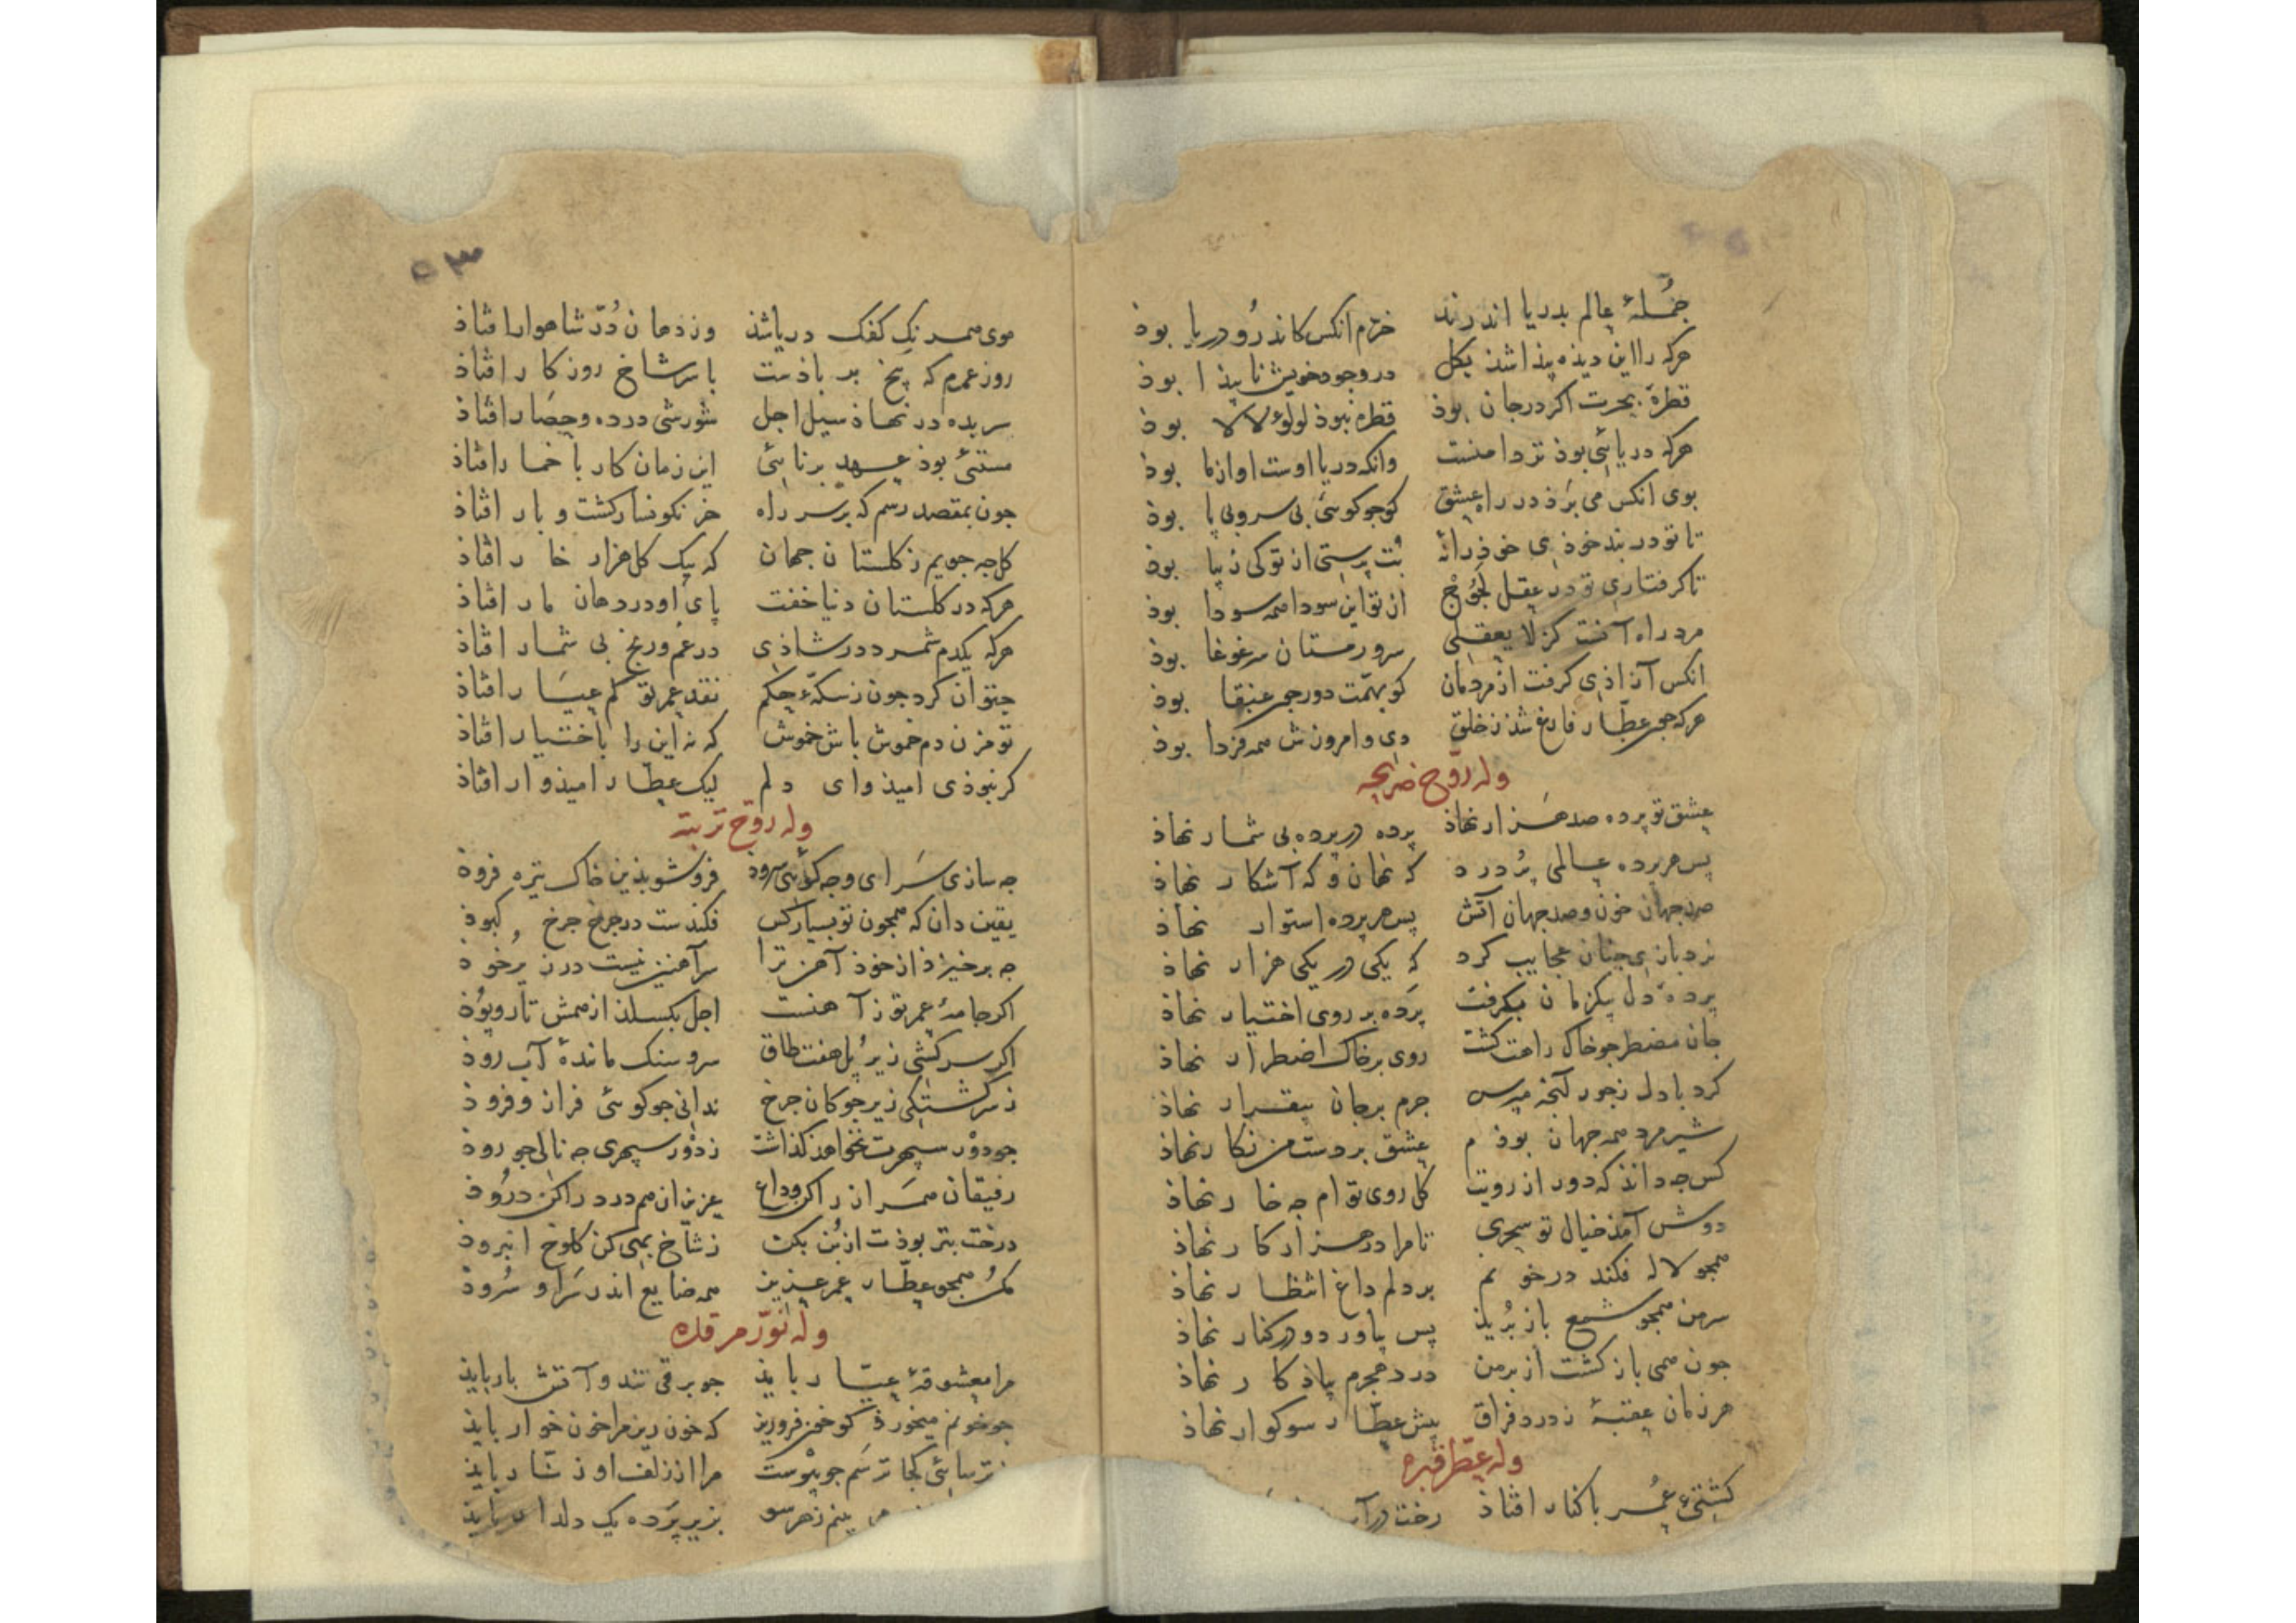 جُملهٔ عالم بدریا اندرند خرّم انکس کاندرُو دریا بود
هرکه را این دیذه پیذا شذ بکل در وجود خویش ناپیذا بود
قطرهٔ بحرت اکر در جان بوذ قطره نبوذ لولوء لالا بود
هرکه دریائی بوذ تردامنست وانکه دریا اوست او از ما بود
بوی انکس می برذ در راه عشق کو جو کوئی بی سر و بی پا بوذ
تا تو در بند خوذی خوذ را بُت پرستی از تو کی زیبا بوذ
تا کرفتاری تو در عقل لجُوج از تو این سودا همه سودا بوذ
مرد راه آنست کز لایعقلی سرور مستان سرغوغا بوذ
انکس آزاذی کرفت از مردمان کو بهمّت دور جو عنقا بوذ
هرکه جو عطّار فارغ شذ ز خلق دی و امروزش همه فردا بوذ
وله روّح ضریحه
عشق تو پرده صد هزار نهاذ پرده در پرده بی شمار نهاذ
پس هر پرده عالمی پُر درد که نهان و که آشکار نهاذ
صد جهان خون و صد جهان آتش پس هر پرده استوار نهاذ
نرد بازی جنان عجایب کرد که یکی در یکی هزار نهاذ
پردهٔ دل بیکزمان بکرفت پرده بر روی اختیار نهاذ
جان مضطر جو خاک راهت کشت روی بر خاک اضطرار نهاذ
کرد با دل ز جور آنجه مپرس جرم بر جان بیقرار نهاذ
شیر مرد همه جهان بوذم عشق بر دست من نکار نهاذ
کس جه داند که دور از رویت کل روی توام جه خار نهاذ
دوش آمذ خیال تو سحری تا مرا در هزار کار نهاذ
همجو لاله فکند در خونم بر دلم داغ انتظار نهاذ
سر من همجو شمع باز بُریذ پس بیاورد و در کنار نهاذ
جون همی باز کشت از بر من درد هجرم بیاذکار نهاذ
هر زمان عقبهٔ ز درد فراق پیش عطّار سوکوار نهاذ
وله عطّر قبره
کشتئ عُمر با کنار افتاذ رخت در آب
۵۳
موی همرنک کفک دریا شذ وز دهان دُرّ شاهوار افتاذ
روز عمرم که بیخ بر باذست با سر شاخ روزکار افتاذ
سر بده در نهاذ سیل اجل شورشی در ده و حصار افتاذ
مستئ بوذ عهد برنائی این زمان کار با خمار افتاذ
جون بمقصد رسم که بر سر راه خر نکونسار کشت و بار افتاذ
کل جه جویم ز کلستان جهان که بیک کل هزار خار افتاذ
هرکه در کلستان دنیا خفت پای او در دهان مار افتاذ
هرکه یکدم شمرد در شاذی در غم و رنج بی شمار افتاذ
جتوان کرد جون ز سکّهٔ حکم نقد عمر تو کم عیار افتاذ
تو مزن دم خموش باش خموش که نه این را باختیار افتاذ
کر نبوذی امیذ وای دلم لیک عطّار امیذوار افتاذ
وله روّح تربته
جه سازی سرای و جه کوئی سرود فروشو بذین خاک تیره فروذ
یقین دان که همجون تو بسیار کس فکندست در جرخ جرخ کبوذ
جه برخیزذ از خوذ آهن ترا سر آهنین نیست در زیر خُوذ
اکر جامهٔ عمر تو ز آهنست اجل بکسلد از همش تار و پُوذ
اکر سرکشی زیر پُل هفت طاق سر و سنک ماندهٔ آب روذ
ز سرکشتکی زیر جوکان جرخ ندانی جو کوئی فراز و فروذ
جو دور سپهرت نخواهذ کذاشت ز دور سپهری جه نالی جو روذ
رفیقان همراز را کن وداع عزیزان همدرد را کن درُوذ
درخت بتر بوذت از بُن بکن ز شاخ بهی کن کلوخ امروذ
مکُن همجو عطّار عمر عزیز همه ضایع اندر سرا و سُروذ
وله نوّر مرقده
مرا معشوقهٔ عیّار بایذ جو برقی تند و آتش بار بایذ
جو خونم میخورذ کو خون فروریز که خون ریز مرا خون خوار بایذ
ز ترسائی کجا ترسم جو پیوست مرا از زلف او زنّار بایذ
بینم ز هر سو بزیر پرده یک دلدار بایذ